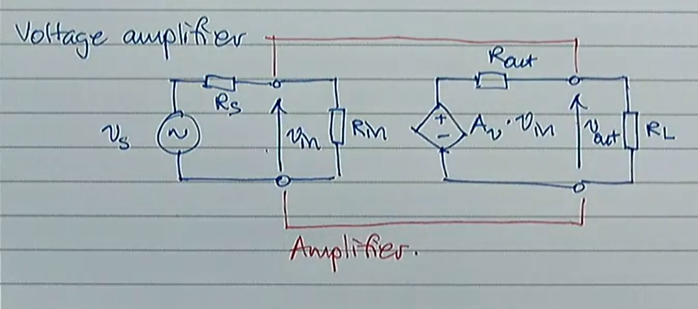 Voltage amplifier
Rs
Rout
vs
vin
Rin
+
-
Av·vin
vout
RL
Amplifier.